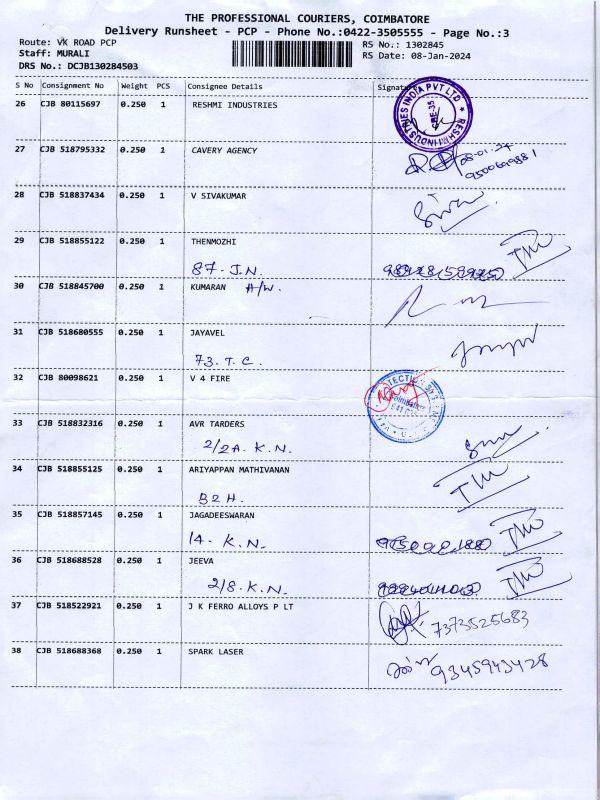 THE PROFESSIONAL COURIERS, COIMBATORE
Delivery Runsheet - PCP - Phone No.:0422-3505555 - Page No.:3
Route: VK ROAD PCP
Staff: MURALI
DRS No.: DCJB130284503
RS No.: 1302845
RS Date: 08-Jan-2024
S No Consignment No Weight PCS Consignee Details Signature
26 CJB 80115697 0.250 1 RESHMI INDUSTRIES
RESHMI INDUSTRIES INDIA PVT LTD
CBE-35
27 CJB 518795332 0.250 1 CAVERY AGENCY
28 CJB 518837434 0.250 1 V SIVAKUMAR
Siva
29 CJB 518855122 0.250 1 THENMOZHI
87. J.N.
30 CJB 518845700 0.250 1 KUMARAN H/W.
31 CJB 518680555 0.250 1 JAYAVEL
73. T. C.
32 CJB 80098621 0.250 1 V 4 FIRE
33 CJB 518832316 0.250 1 AVR TARDERS
2/2A. K.N.
34 CJB 518855125 0.250 1 ARIYAPPAN MATHIVANAN
B2H.
35 CJB 518857145 0.250 1 JAGADEESWARAN
14. K.N.
36 CJB 518688528 0.250 1 JEEVA
2/8. K.N.
37 CJB 518522921 0.250 1 J K FERRO ALLOYS P LT
7373525683
38 CJB 518688368 0.250 1 SPARK LASER
9345943428